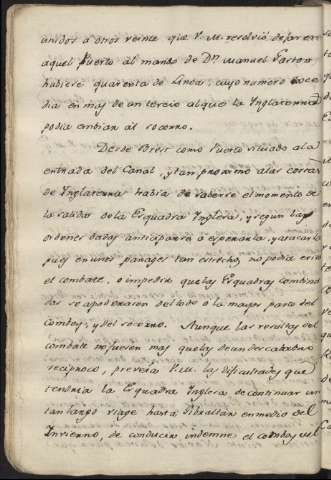 unidos a otros veinte que V. M. resolvió dejar en
aquel Puerto al mando de Dn Manuel Gaston
hubiere quarenta de Linea, cuyo numero exce
dia en mas de un tercio al que la Inglaterra
podia embiar al socorro.
Desde Brest como Puerto situado a la
entrada del Canal, y tan proximo a las costas
de Inglaterra havia de saberse el momento de
la salida de la Esquadra Inglesa, y segun las
ordenes dadas anticiparse a esperarla, y atacarla
pues en unos parages tan estrechos no podia
el combate, o impedir que las Esquadras combina
das se apoderasen del todo o la mayor parte del
Comboy, y del socorro. Aunque las resultas del
combate no fuesen mas que las de un descalabro
reciproco, preveria V.M. las dificultades que
tendria la Esquadra Inglesa de continuar un
tan largo viage hasta Gibraltar en medio del
Invierno, de conducir indemne el comboy